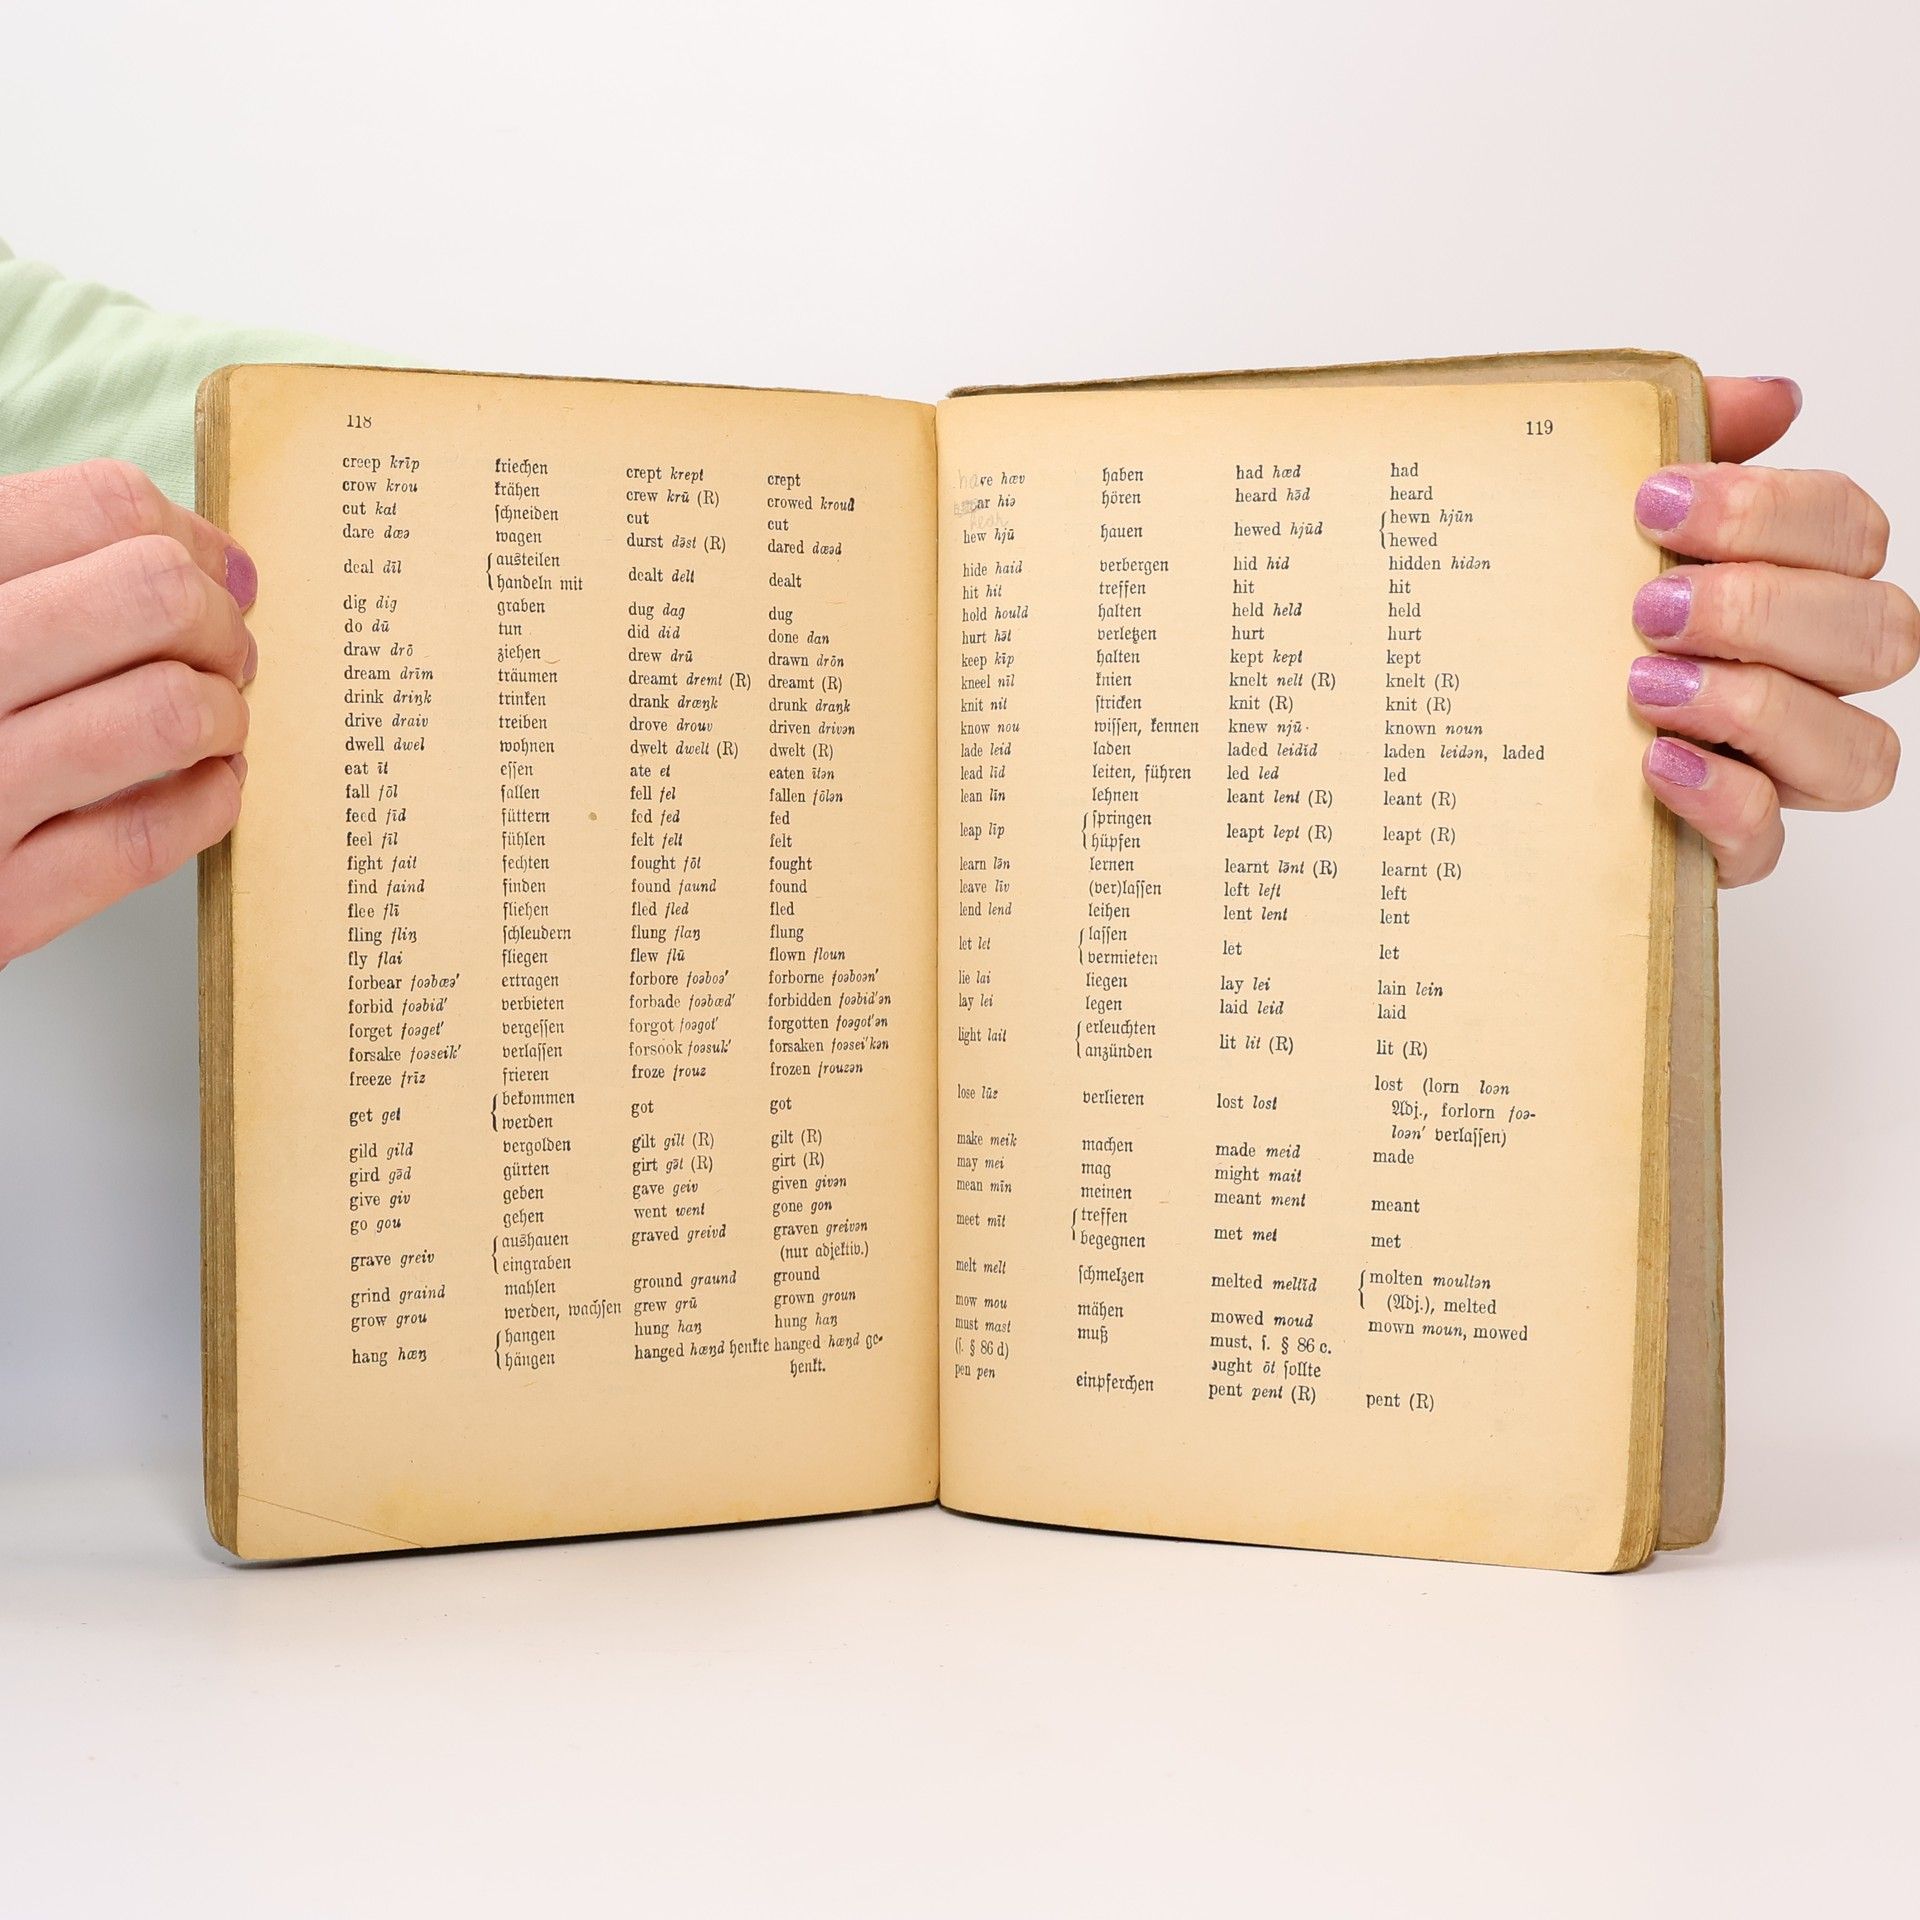 118
creep krīp kriechen crept krept crept
crow krou krähen crew krū (R) crowed kroud
cut kat schneiden cut cut
dare dæə wagen durst dəst (R) dared dæəd
deal dīl { austeilen dealt delt dealt
{ handeln mit
dig dig graben dug dag dug
do dū tun did did done dan
draw drō ziehen drew drū drawn drōn
dream drīm träumen dreamt dremt (R) dreamt (R)
drink driŋk trinken drank dræŋk drunk draŋk
drive draiv treiben drove drouv driven drivən
dwell dwel wohnen dwelt dwelt (R) dwelt (R)
eat īt essen ate et eaten ītən
fall fōl fallen fell fel fallen fōlən
feed fīd füttern fed fed fed
feel fīl fühlen felt felt felt
fight fait fechten fought fōt fought
find faind finden found faund found
flee flī fliehen fled fled fled
fling fliŋ schleudern flung flaŋ flung
fly flai fliegen flew flū flown floun
forbear foəbæə' ertragen forbore foəboə' forborne foəboən'
forbid foəbid' verbieten forbade foəbæd' forbidden foəbid'ən
forget foəget' vergessen forgot foəgot' forgotten foəgot'ən
forsake foəseik' verlassen forsook foəsuk' forsaken foəsei'kən
freeze frīz frieren froze frouz frozen frouzən
get get { bekommen got got
{ werden
gild gild vergolden gilt gilt (R) gilt (R)
gird gəd gürten girt gət (R) girt (R)
give giv geben gave geiv given givən
go gou gehen went went gone gon
grave greiv { aushauen graved greivd graven greivən
{ eingraben (nur adjektiv.)
grind graind mahlen ground graund ground
grow grou werden, wachsen grew grū grown groun
hang hæŋ { hangen hung haŋ hung haŋ
{ hängen hanged hæŋd henkte hanged hæŋd ge-
henkt.
119
have hæv haben had hæd had
ar hiə hören heard hə̄d heard
hear
hew hjū hauen hewed hjūd { hewn hjūn
{ hewed
hide haid verbergen hid hid hidden hidən
hit hit treffen hit hit
hold hould halten held held held
hurt hə̄t verletzen hurt hurt
keep kīp halten kept kept kept
kneel nīl knien knelt nelt (R) knelt (R)
knit nit stricken knit (R) knit (R)
know nou wissen, kennen knew njū known noun
lade leid laden laded leidid laden leidən, laded
lead līd leiten, führen led led led
lean līn lehnen leant lent (R) leant (R)
leap līp { springen leapt lept (R) leapt (R)
{ hüpfen
learn lə̄n lernen learnt lə̄nt (R) learnt (R)
leave līv (ver)lassen left left left
lend lend leihen lent lent lent
let let { lassen let let
{ vermieten
lie lai liegen lay lei lain lein
lay lei legen laid leid laid
light lait { erleuchten lit lit (R) lit (R)
{ anzünden
lose lūz verlieren lost lost lost (lorn loən
Adj., forlorn foə-
loən' verlassen)
make meik machen made meid made
may mei mag might mait
mean mīn meinen meant ment meant
meet mīt { treffen met met met
{ begegnen
melt melt schmelzen melted meltid { molten moultən
{ (Adj.), melted
mow mou mähen mowed moud mown moun, mowed
must mast muß must, s. § 86 c.
(s. § 86 d) ought ōt sollte
pen pen einpferchen pent pent (R) pent (R)